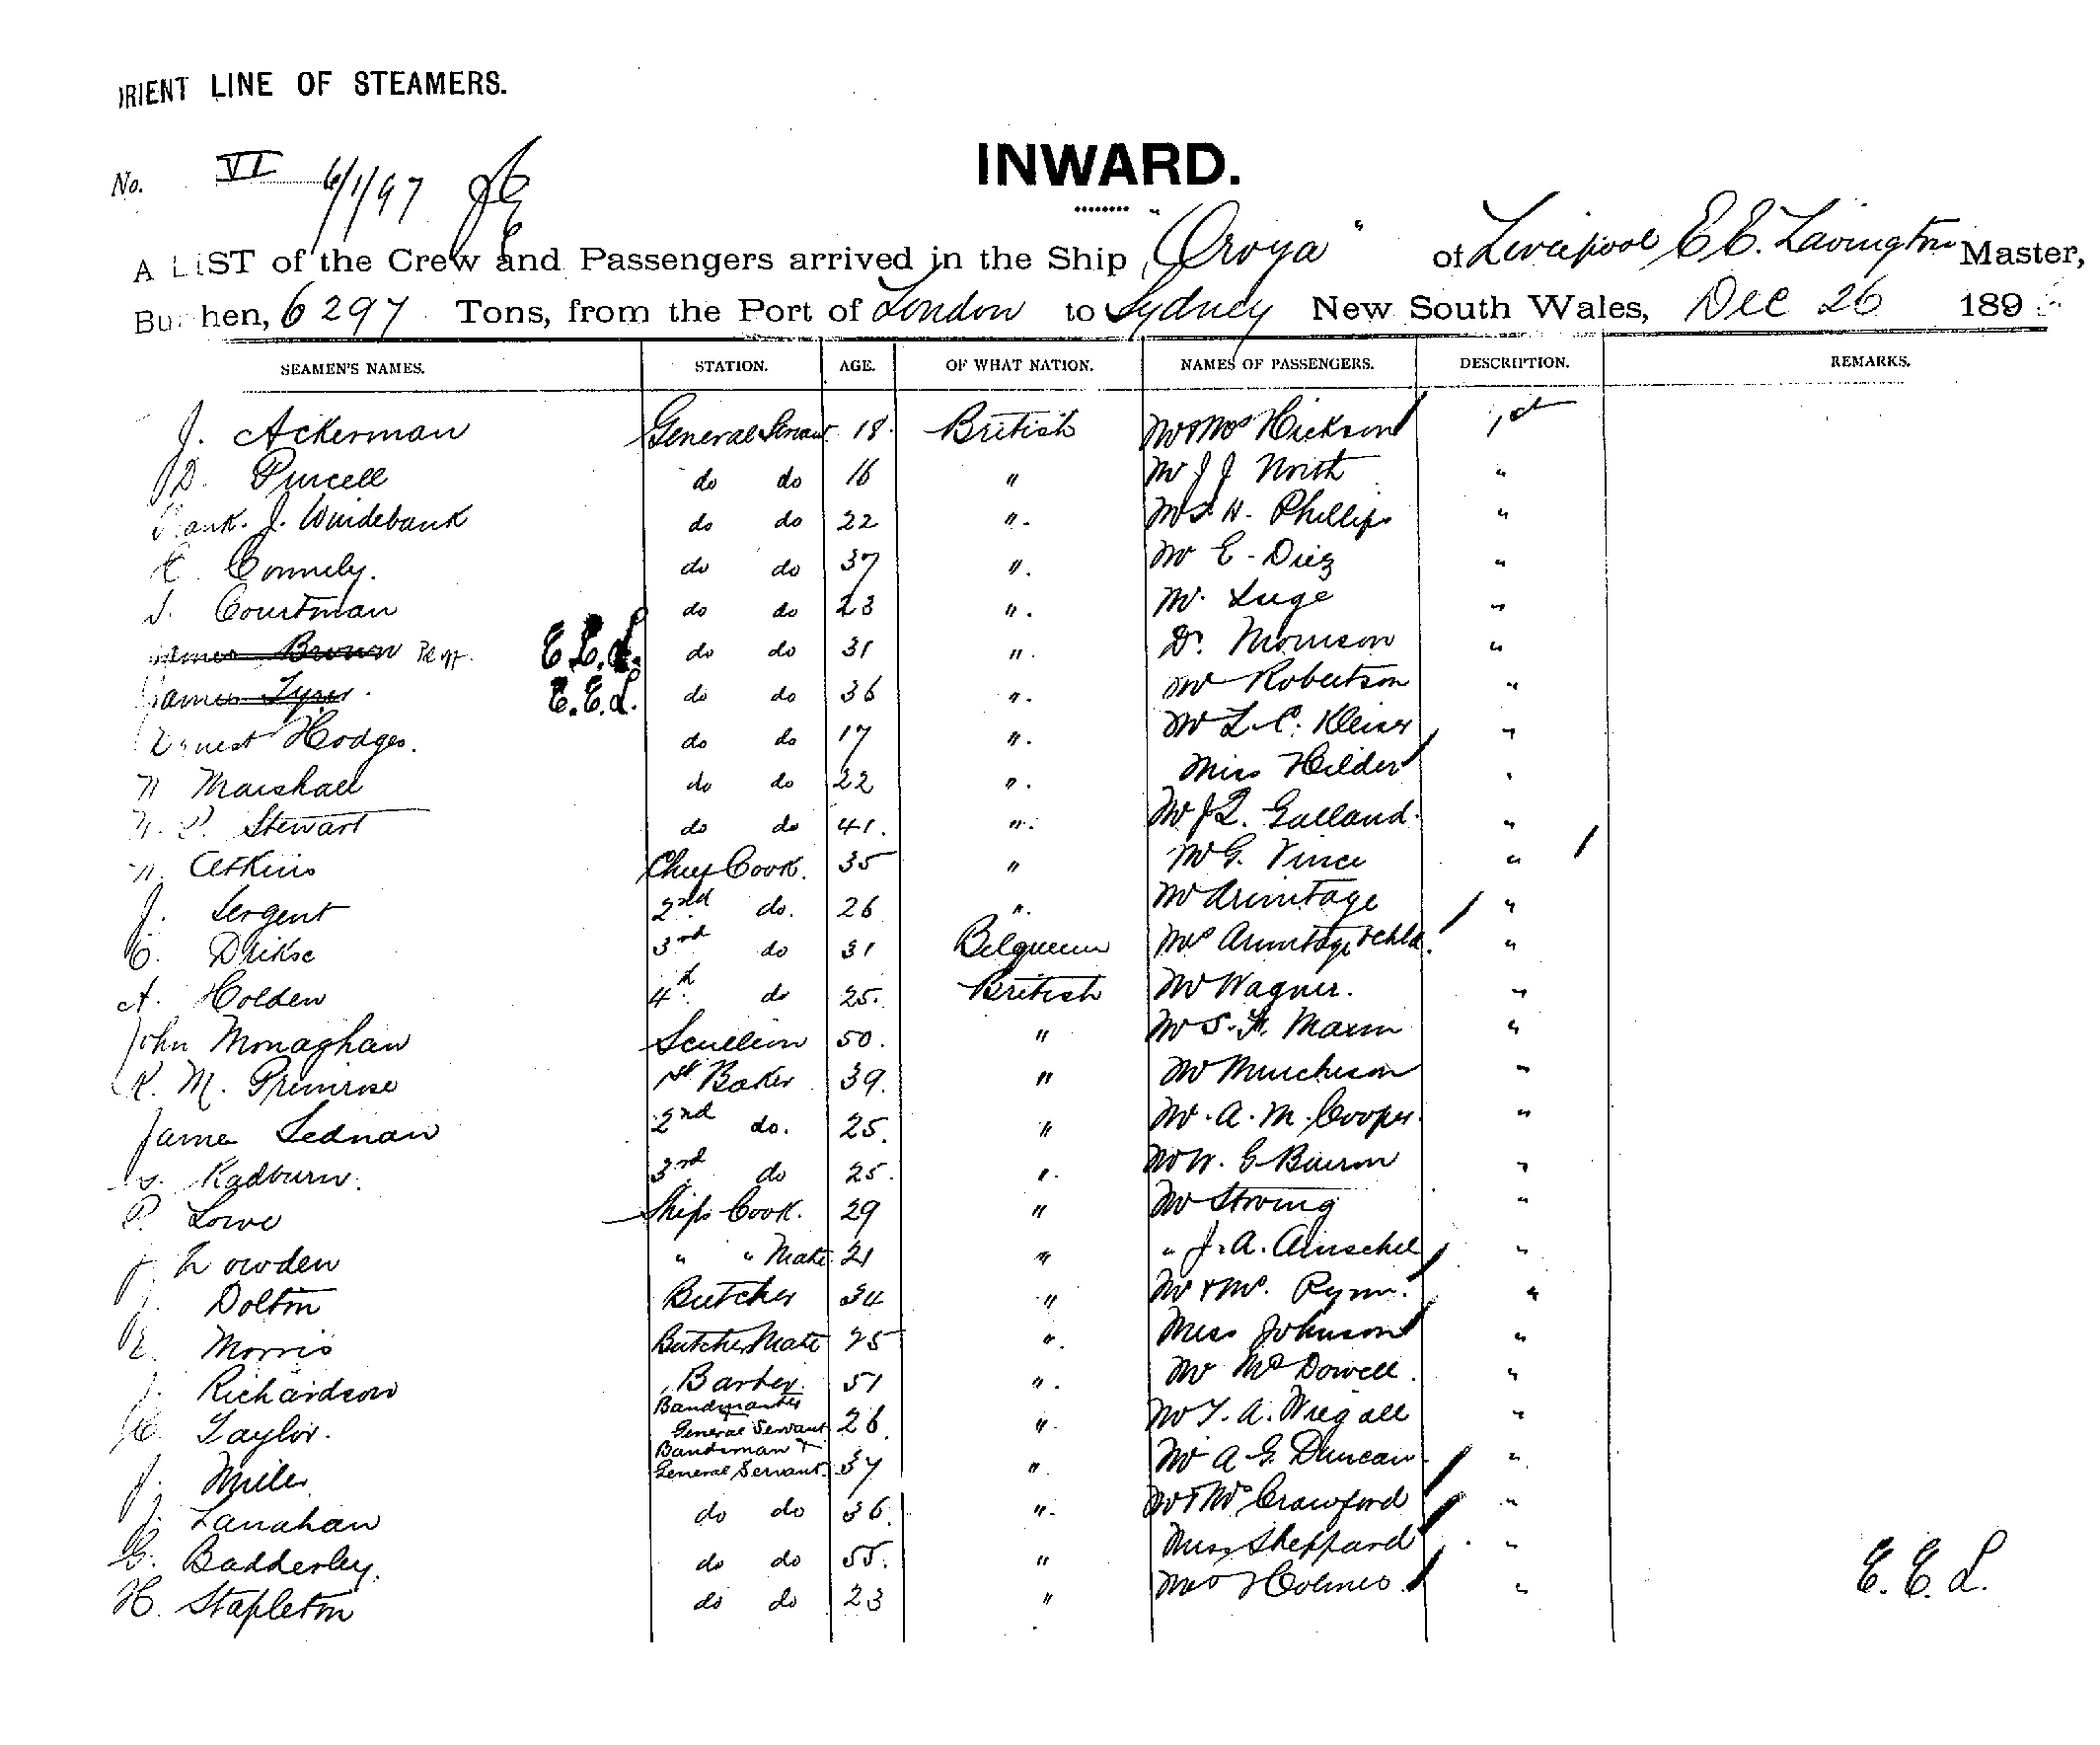 ORIENT LINE OF STEAMERS.
No. VI 6/1/97
INWARD.
A LIST of the Crew and Passengers arrived in the Ship "Oroya" of Liverpool E E. Lavington Master,
Burthen, 6297 Tons, from the Port of London to Sydney New South Wales, Dec 26 189
SEAMEN'S NAMES. STATION. AGE. OF WHAT NATION. NAMES OF PASSENGERS. DESCRIPTION. REMARKS.
J. Ackerman General Servant 18. British Mr & Mrs Hickson 1st
D. Purcell do do 16 " Mr J J North "
Frank. J. Windebank do do 22 " H. Phillips "
C. Connely. do do 37 " Mr E. Diez "
Courtman do do 23 " Mr. Luge "
James Brown E.E.L. do do 31 " Dr. Morrison "
James Tyrer. E.E.L. do do 36 " Mr Robertson "
Ernest Hodges. do do 17 " Mr L. C. Kleiser "
Marshall do do 22 " Miss Hilder "
P. Stewart do do 41. " Mr J Galland. "
Atkins Chief Cook. 35 " Mr G. Vince "
J. Sergent 2nd do. 26 " Mr Armitage "
C. Drikse 3rd do 31 Belgium Mrs Armitage & chld. "
A. Holden 4th do 25. British Mr Wagner. "
John Monaghan Scullion 50. " Mr S. "
R. M. Primrose 1st Baker 39. " Mr Murcheson "
James Lednan 2nd do. 25. " Mr. A. M. Cooper. "
Radburn. 3rd do 25. " Mr W. G "
P. Lowe Ships Cook. 29 " Mr Strong "
J. Lowden " " Mate 21 " " J. A. "
J. Dolton Butcher 34 " Mr & Mrs. "
E. Morris Butchers Mate 25 " Miss Johnson "
J. Richardson Barber. 51 " Mr McDowell. "
H. Taylor. Bandmaster General Servant 26. " Mr T. A. Wiegall "
J. Miller Bandsman & General Servant. 37 " Mr A G. Duncan "
J. Lanahan do do 36. " Mr & Mrs Crawford "
G. Badderley. do do 55. " Miss Sheppard "
H. Stapleton do do 23 " Mrs Holmes. " E. E. L.